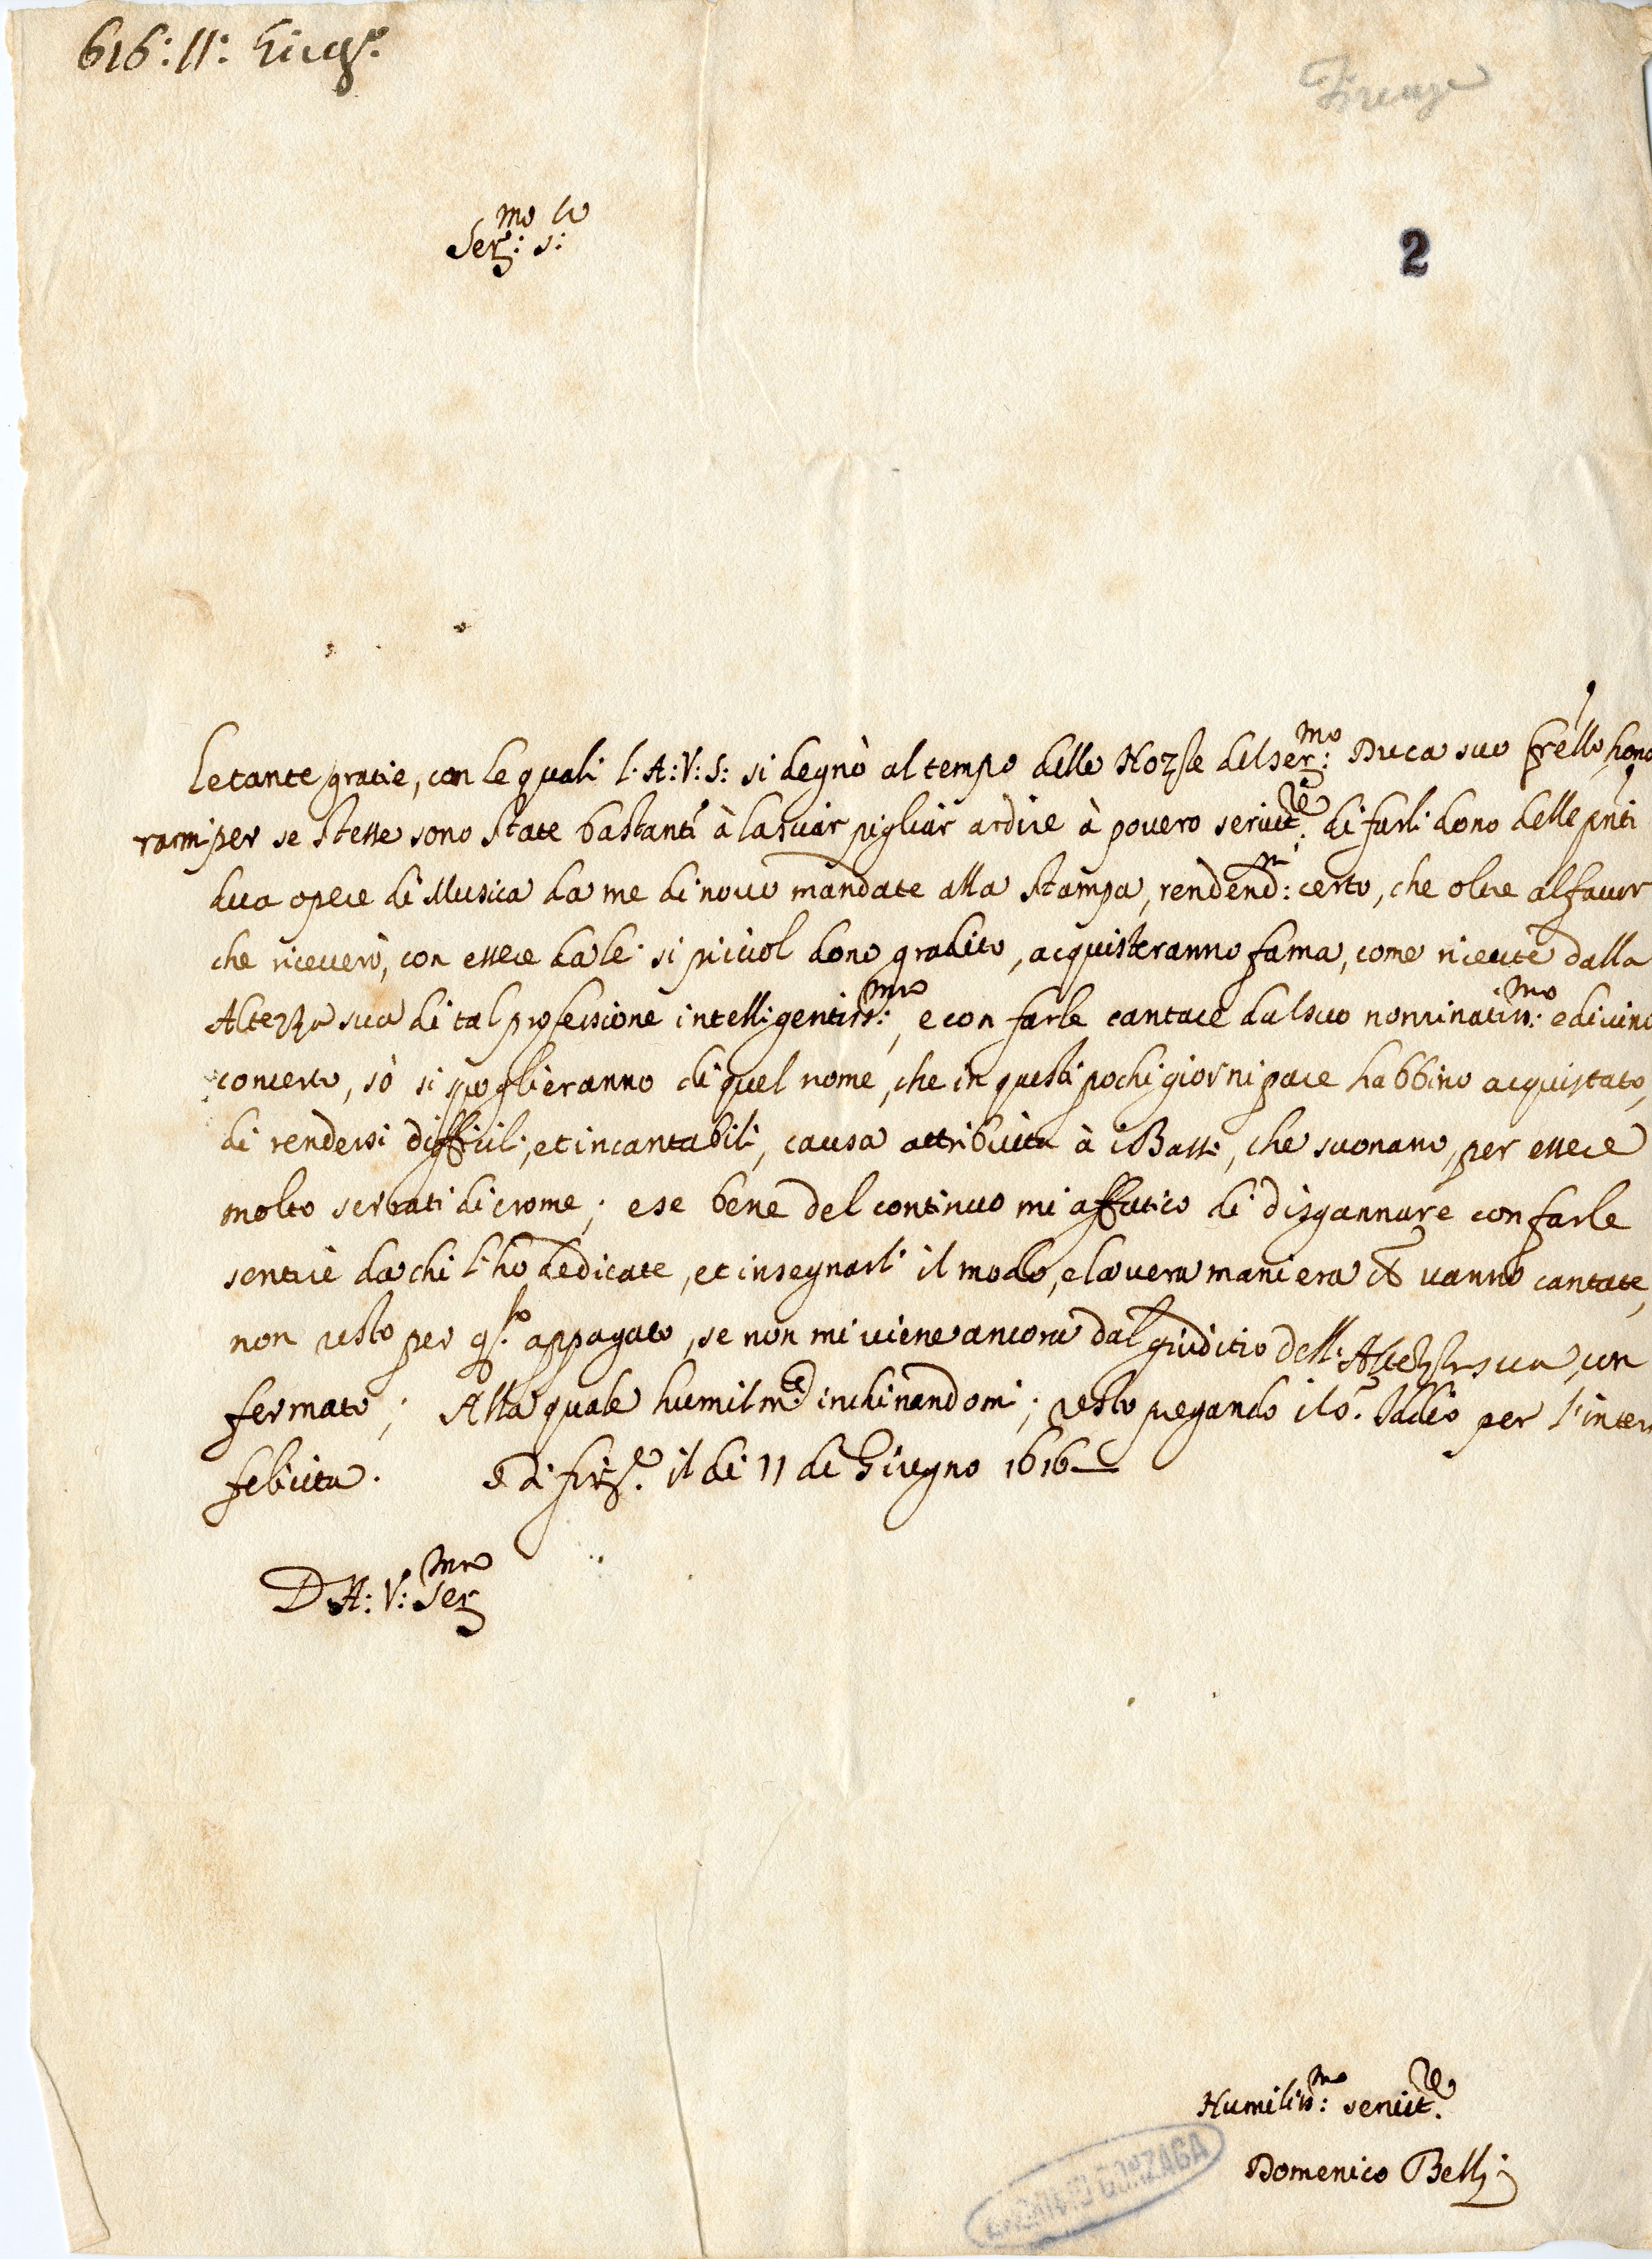 616: 11: Giug.o
Firenze
Ser.mo S.re
2
Le tante gratie, con le quali l'A: V: S: si degnò al tempo delle Nozze del Ser.mo Duca suo frello, hono
rarmi per se stesse sono state bastanti à lasciar pigliar ardire à povero servit.re di farli dono delle pnti
dua opere di Musica da me di novo mandate alla stampa, rendend.mi certo, che oltre al favor
che riceverò, con essere da lei si picciol dono gradito, acquisteranno fama, come ricevute dalla
Altezza sua di tal professione intelligentiss.mo, e con farle cantare dal suo nominatiss.mo e divino
concerto, sò si spoglieranno di quel nome, che in questi pochi giorni pare habbino acquistato,
di rendersi difficili, et incantabili, causa attribuita à i Bassi, che suonano, per essere
molto serrati di crome; e se bene del continuo mi affatico di disgannare con farle
sentire da chi l'ho dedicate, et insegnarli il modo, e la vera maniera vanno cantate,
non resto per q.sto appagato, se non mi viene ancora dal giuditio dell'Altezza sua, con
fermato; Alla quale humilm.te inchinandomi; resto pregando il S. Iddio per l'intera
felicita. Di Firz.e il di 11 di Giugno 1616
D. A: V: Ser.ma
Humiliss.mo servit.re
Domenico Belli
ARCHIVIO GONZAGA